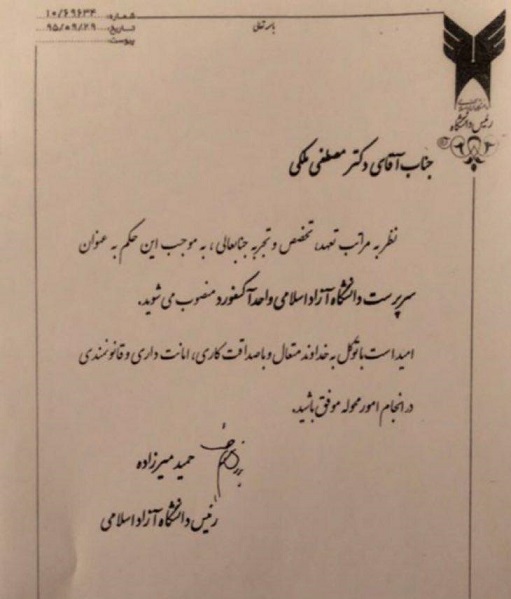 باسمه تعالی
شماره: ۱۰/۶۹۶۳۴
تاریخ: ۹۵/۰۹/۲۹
پیوست:
رئیس دانشگاه
جناب آقای دکتر مصطفی ملکی
نظر به مراتب تعهد، تخصص و تجربه جنابعالی، به موجب این حکم به عنوان
سرپرست دانشگاه آزاد اسلامی واحد آکسفورد منصوب می شوید.
امید است با توکل به خداوند متعال و با صداقت کاری، امانت داری و قانونمندی
در انجام امور محوله موفق باشید.
حمید میرزاده
رئیس دانشگاه آزاد اسلامی